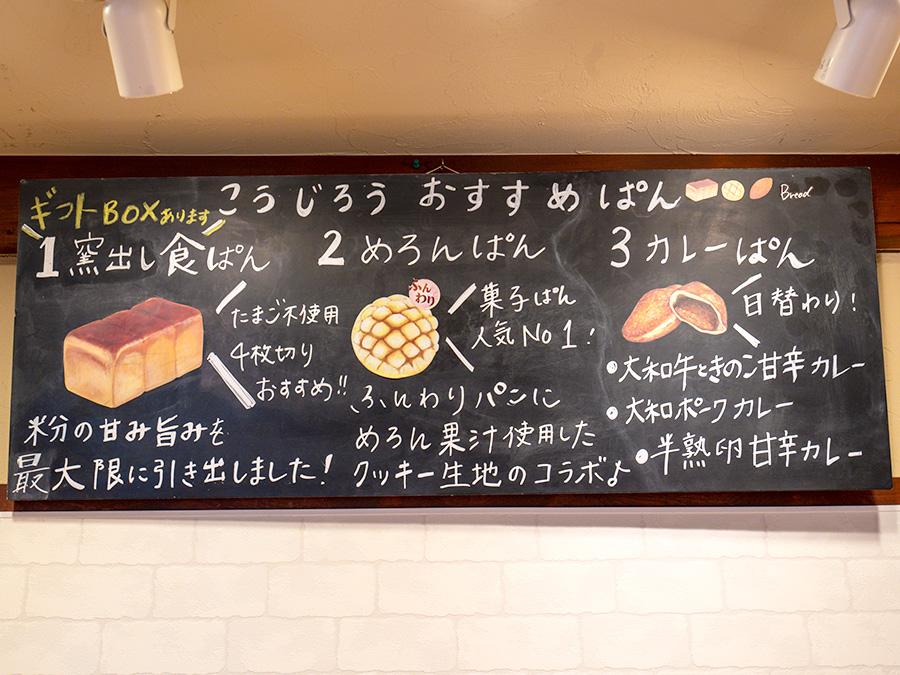 ギフトBOXあります
こうじろう おすすめぱん
Bread
1 窯出し食ぱん
たまご不使用
4枚切り
おすすめ!!
米分の甘み旨みを
最大限に引き出しました!
2 めろんぱん
ふんわり
菓子ぱん
人気No1!
ふんわりパンに
めろん果汁使用した
クッキー生地のコラボ♪
3 カレーぱん
日替わり!
•大和牛ときのこ甘辛カレー
•大和ポークカレー
•半熟卵甘辛カレー